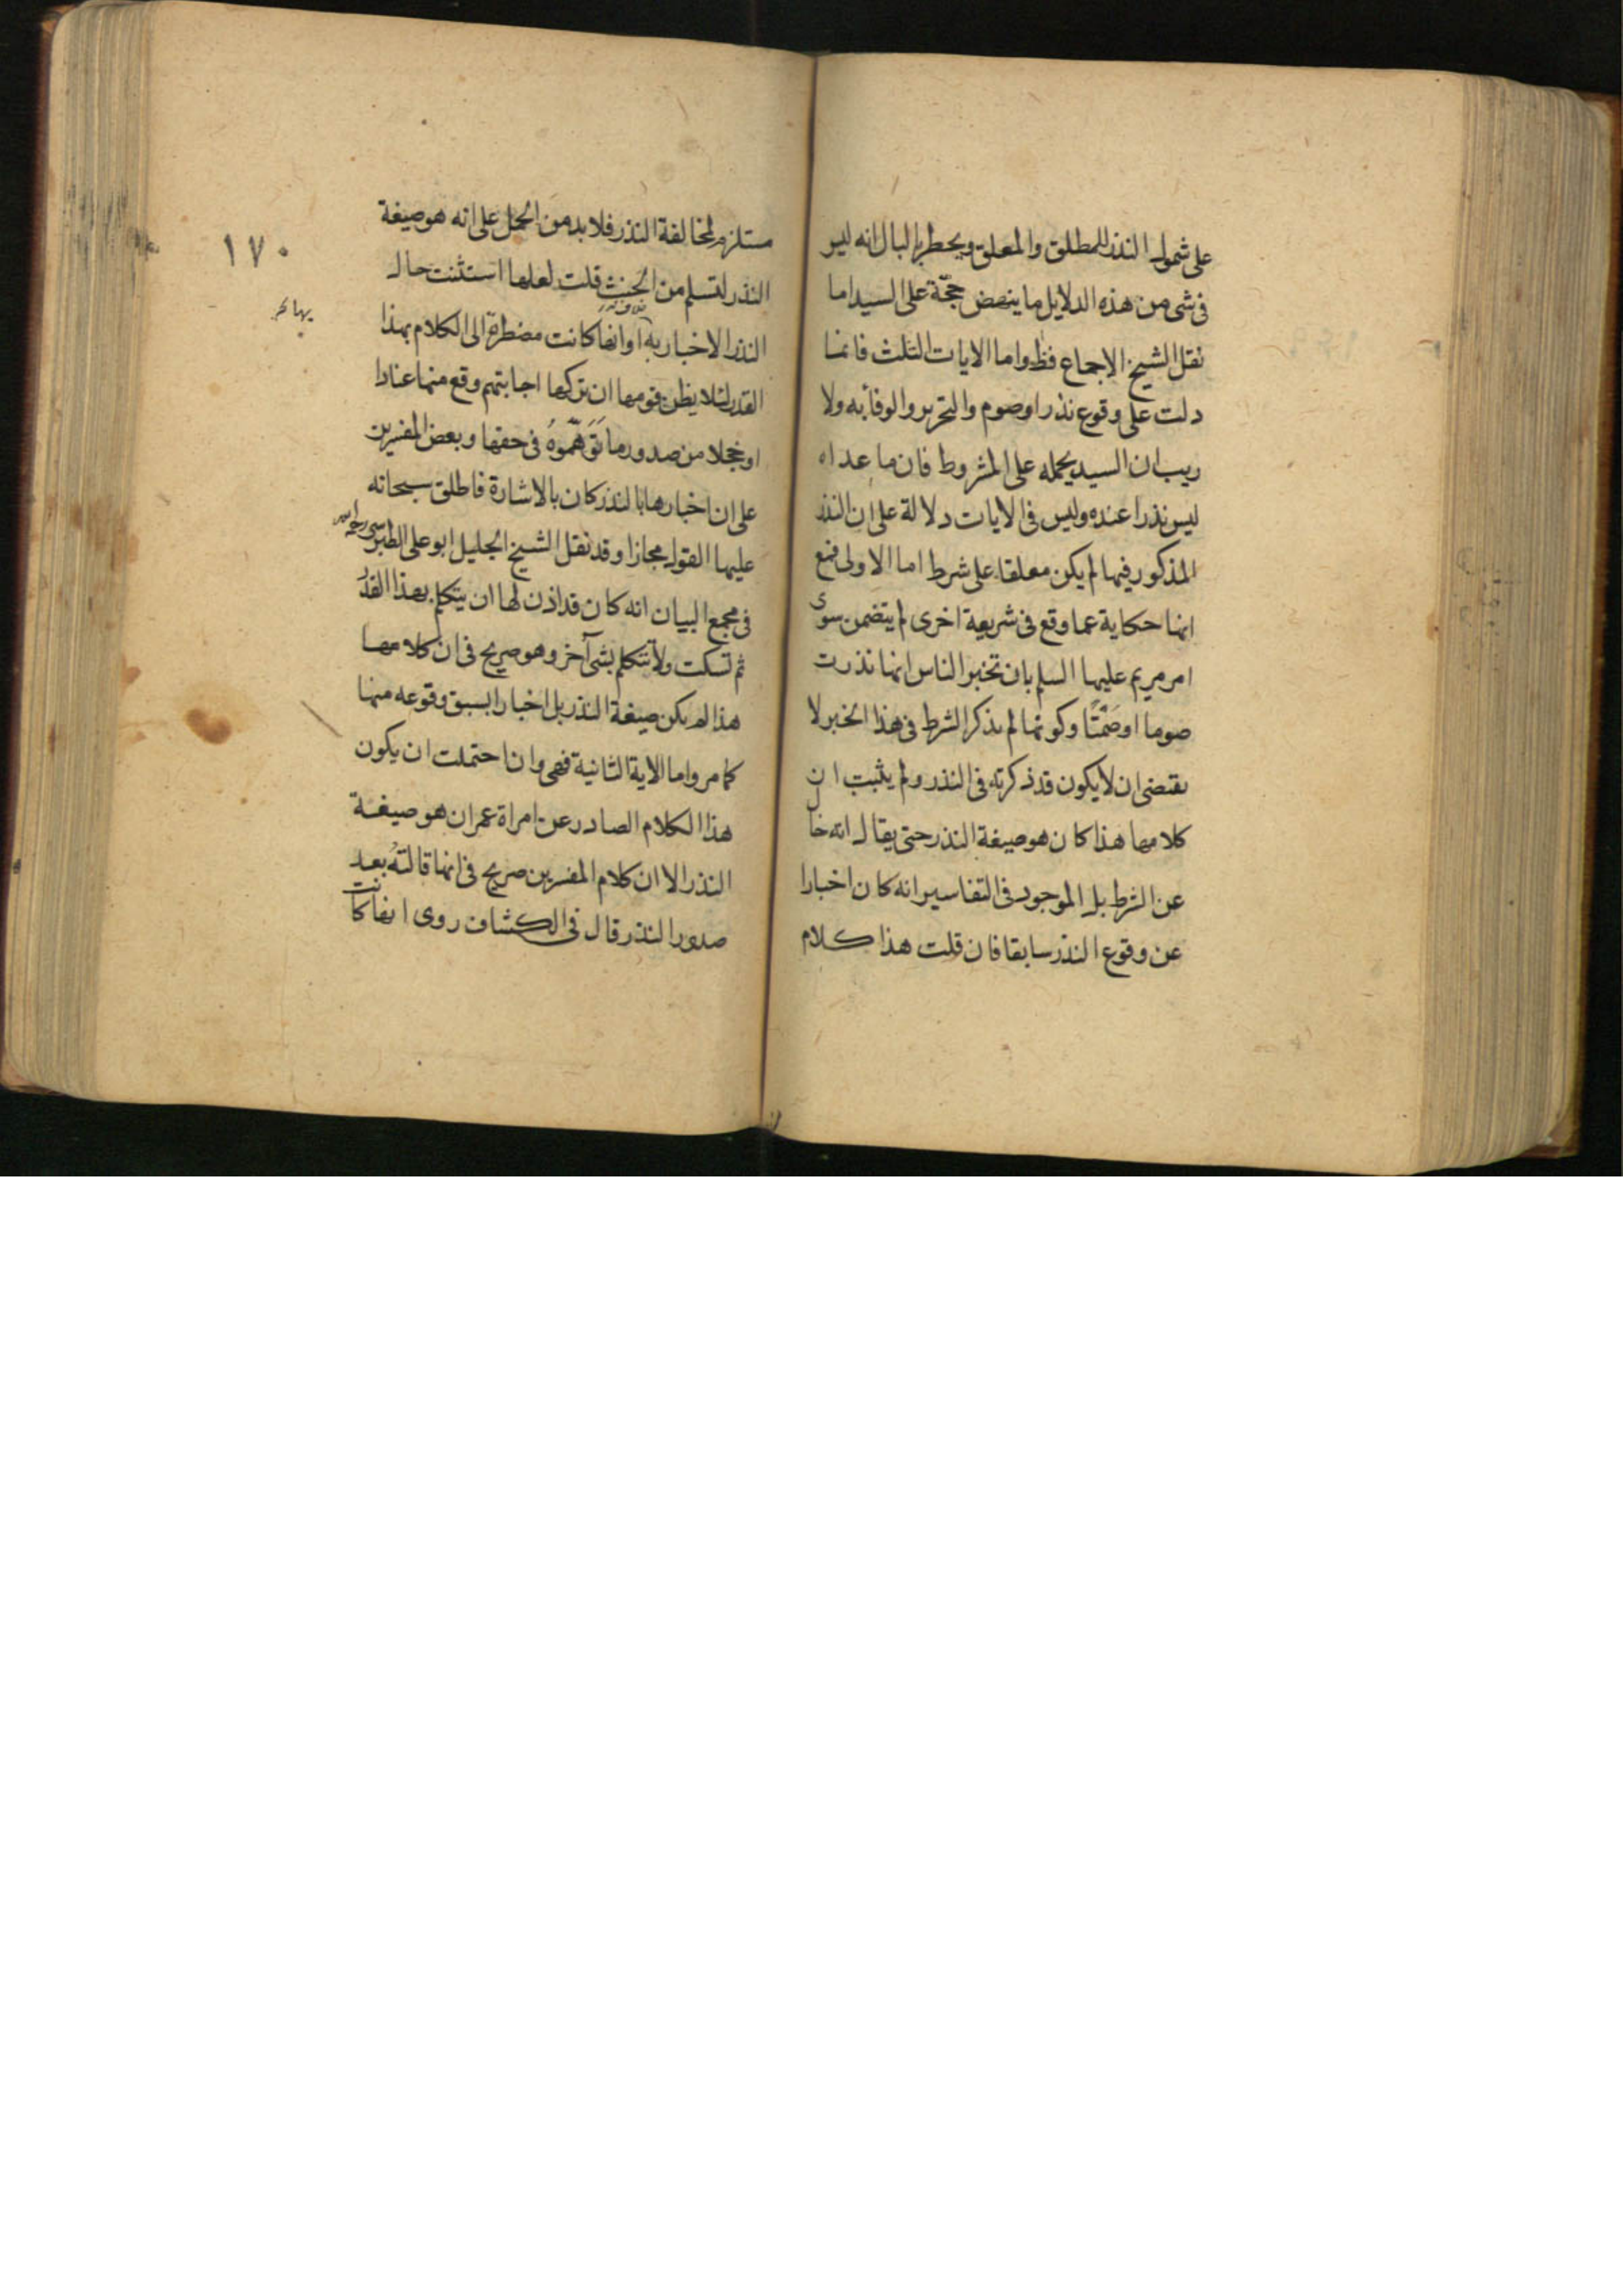 على شمول النذر للمطلق والمعلق ويخطر بالبال انه ليس
فى شى من هذه الدلايل ما ينهض حجّة على السيد اما
نقل الشيخ الاجماع فظ واما الايات الثلث فانما
دلت على وقوع نذر اوصوم والتحرير والوفا به ولا
ريب ان السيد يحمله على المشروط فان ما عداه
ليس نذرا عنده وليس فى الايات دلالة على ان النذر
المذكور فيها لم يكن معلقا على شرط اما الاولى فمع
انها حكاية عما وقع فى شريعة اخرى لم يتضمن سوى
امر مريم عليها السلم بان تخبر الناس انها نذرت
صوما او صَمْتًا وكونها لم يذكر الشرط فى هذا الخبر لا
يقتضى ان لا يكون قد ذكرته فى النذر ولم يثبت ان
كلامها هذا كان هو صيغة النذر حتى يقال انه خال
عن الشرط بل الموجود فى التفاسير انه كان اخبارا
عن وقوع النذر سابقا فان قلت هذا كلام
١٧٠
مستلزم لمخالفة النذر فلا بد من الحمل على انه هو صيغة
النذر لتسلم من الحنث قلت لعلها استثنت حال
النذر الاخبار به او انها كانت مضطرّة الى الكلام بهذا
القدر لئلا يظن قومها ان تركها اجابتهم وقع منها عنادا
او خجلا من صدور ما تَوَهَّموهُ فى حقها وبعض المفسرين
على ان اخبارها بالنذر كان بالاشارة فاطلق سبحانه
عليها القول مجازا وقد نقل الشيخ الجليل ابو على الطبرسى رحمه الله
فى مجمع البيان انه كان قد اذن لها ان يتكلم بهذا القدر
ثم تسكت ولا تتكلم بشى آخر وهو صريح فى ان كلامها
هذا لم يكن صيغة النذر بل اخبارا بسبق وقوعه منها
كما مر واما الاية الثانية فهى وان احتملت ان يكون
هذا الكلام الصادر عن امراة عمران هو صيغة
النذر الا ان كلام المفسرين صريح فى انها قالتهُ بعد
صدور النذر قال فى الكشاف روى انها كانت